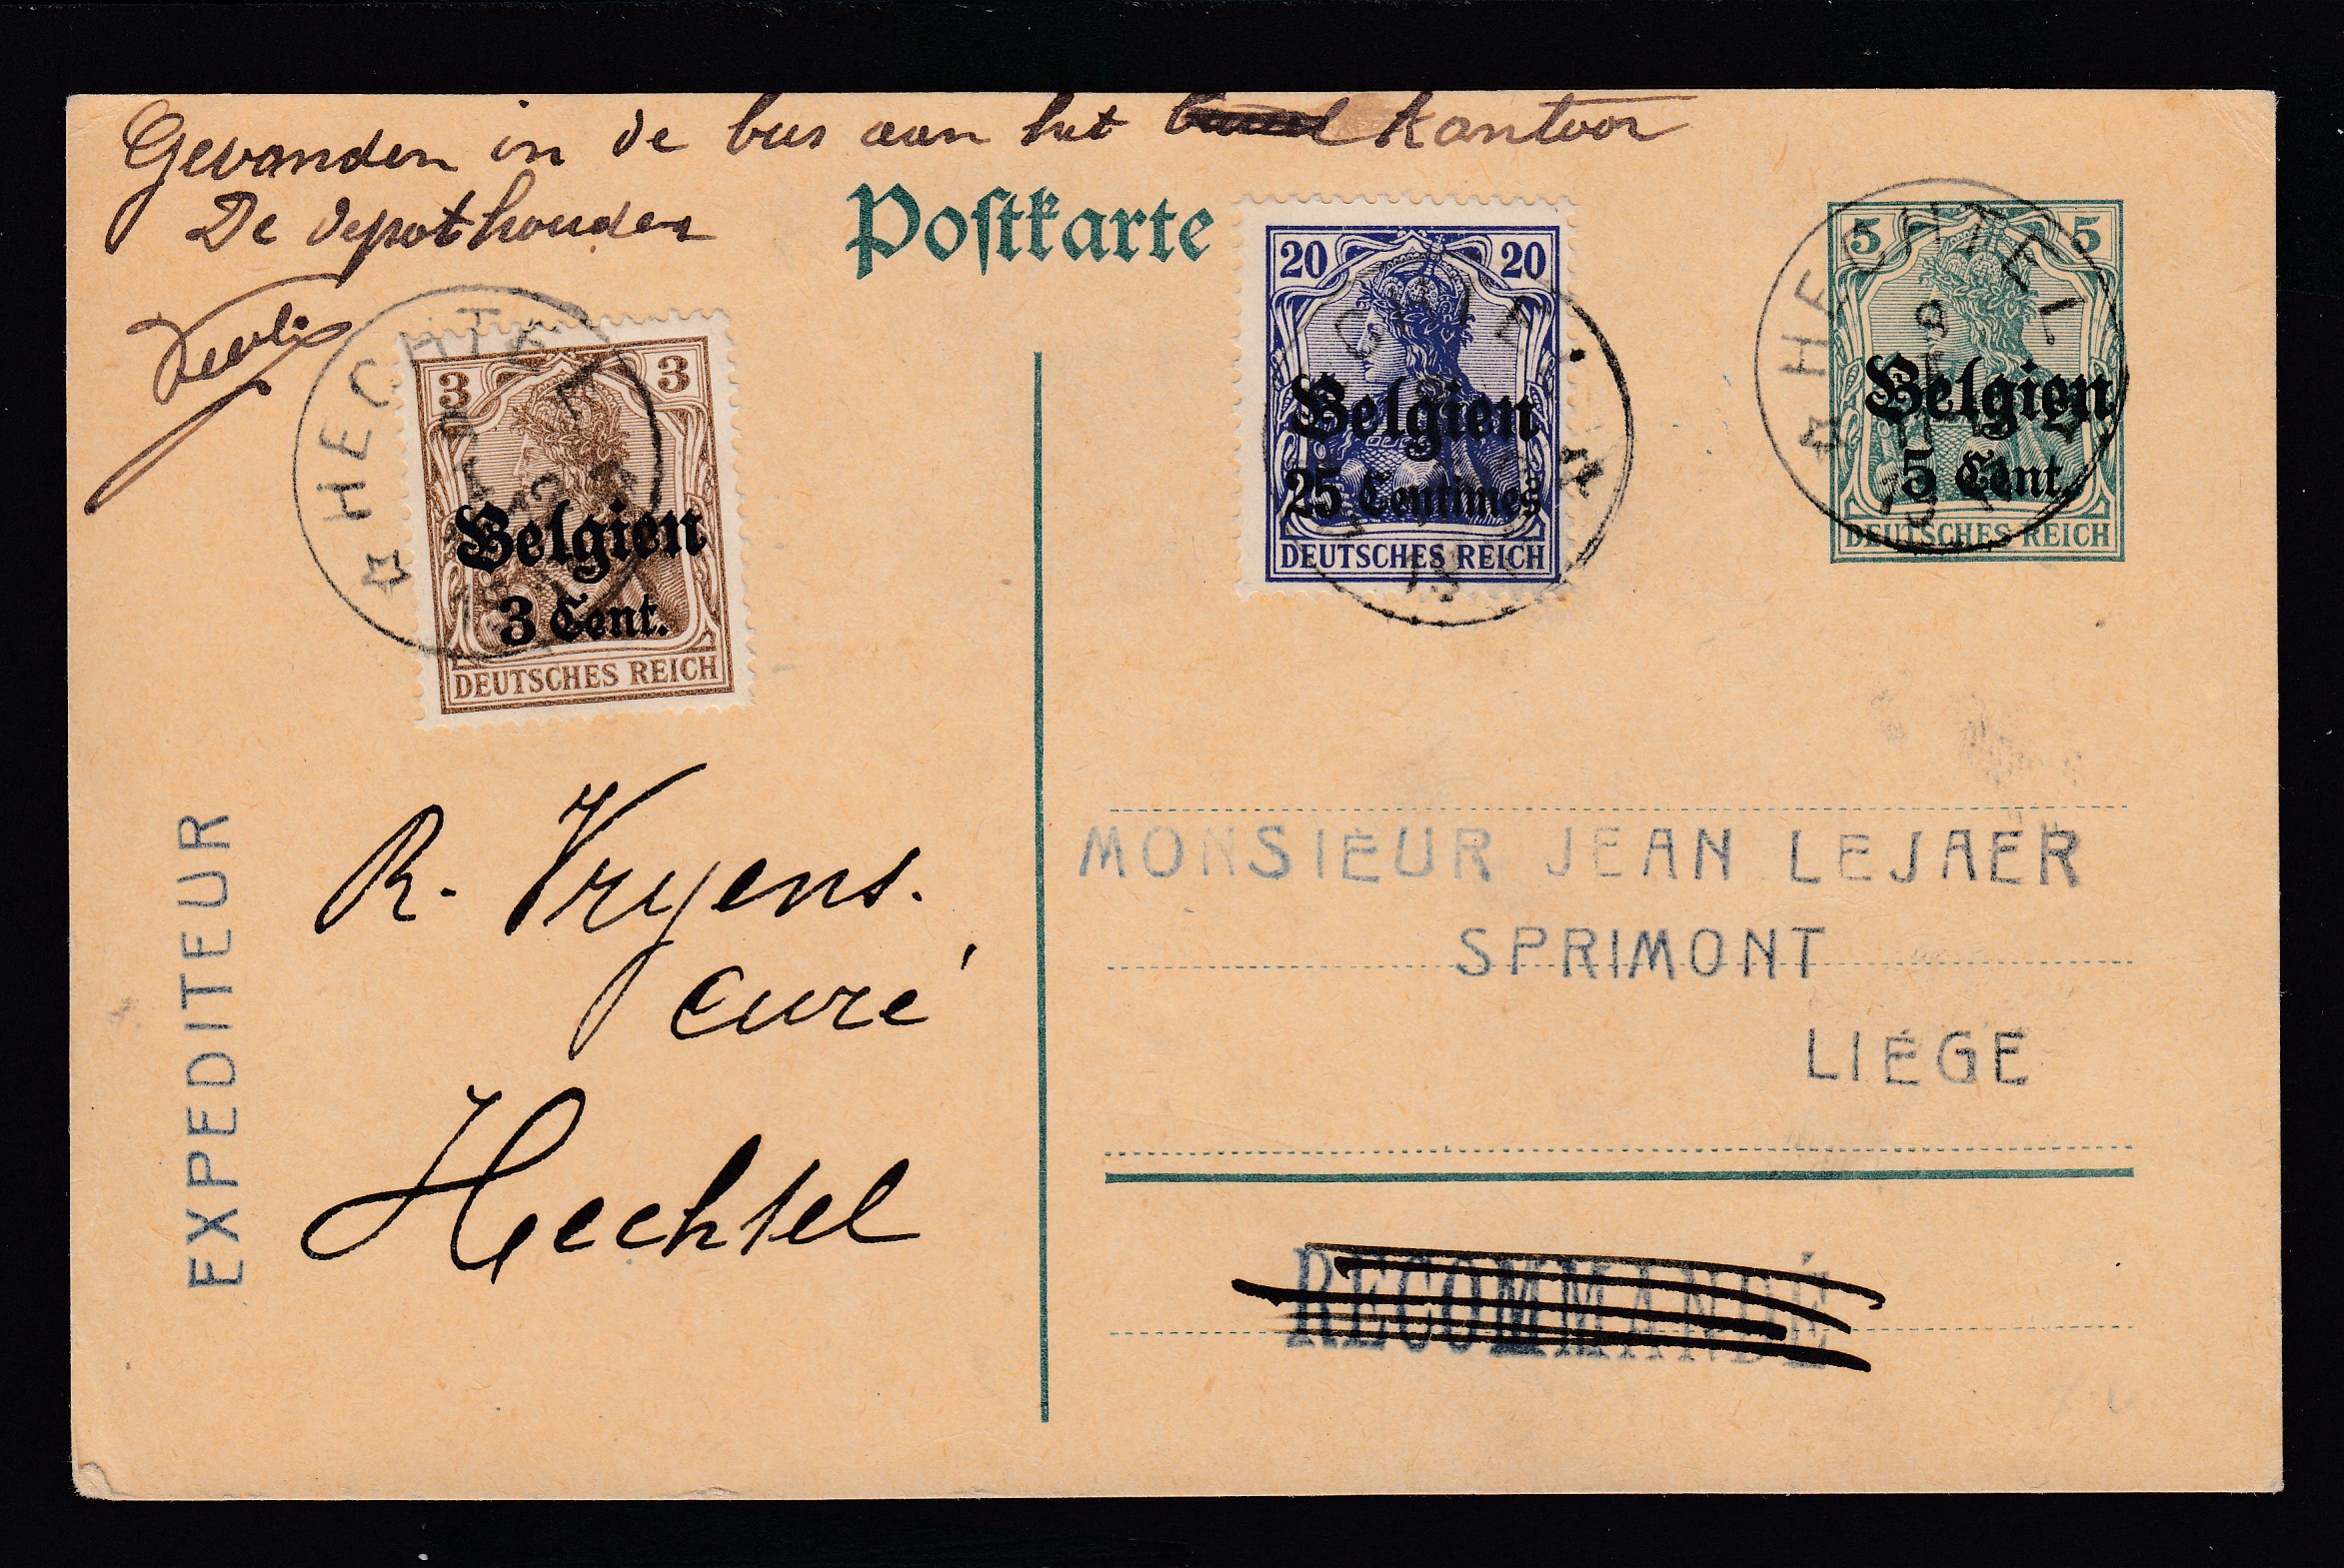 Gevonden in de bus aan het kantoor
De depothouder
Postkarte
3 3
Belgien
3 Cent.
DEUTSCHES REICH
HECHTEL
20 20
Belgien
25 Centimes
DEUTSCHES REICH
HECHTEL
5 5
Belgien
5 Cent.
DEUTSCHES REICH
EXPEDITEUR
R. Vryens.
curé
Hechtel
MONSIEUR JEAN LEJAER
SPRIMONT
LIÉGE
RECOMMANDÉ